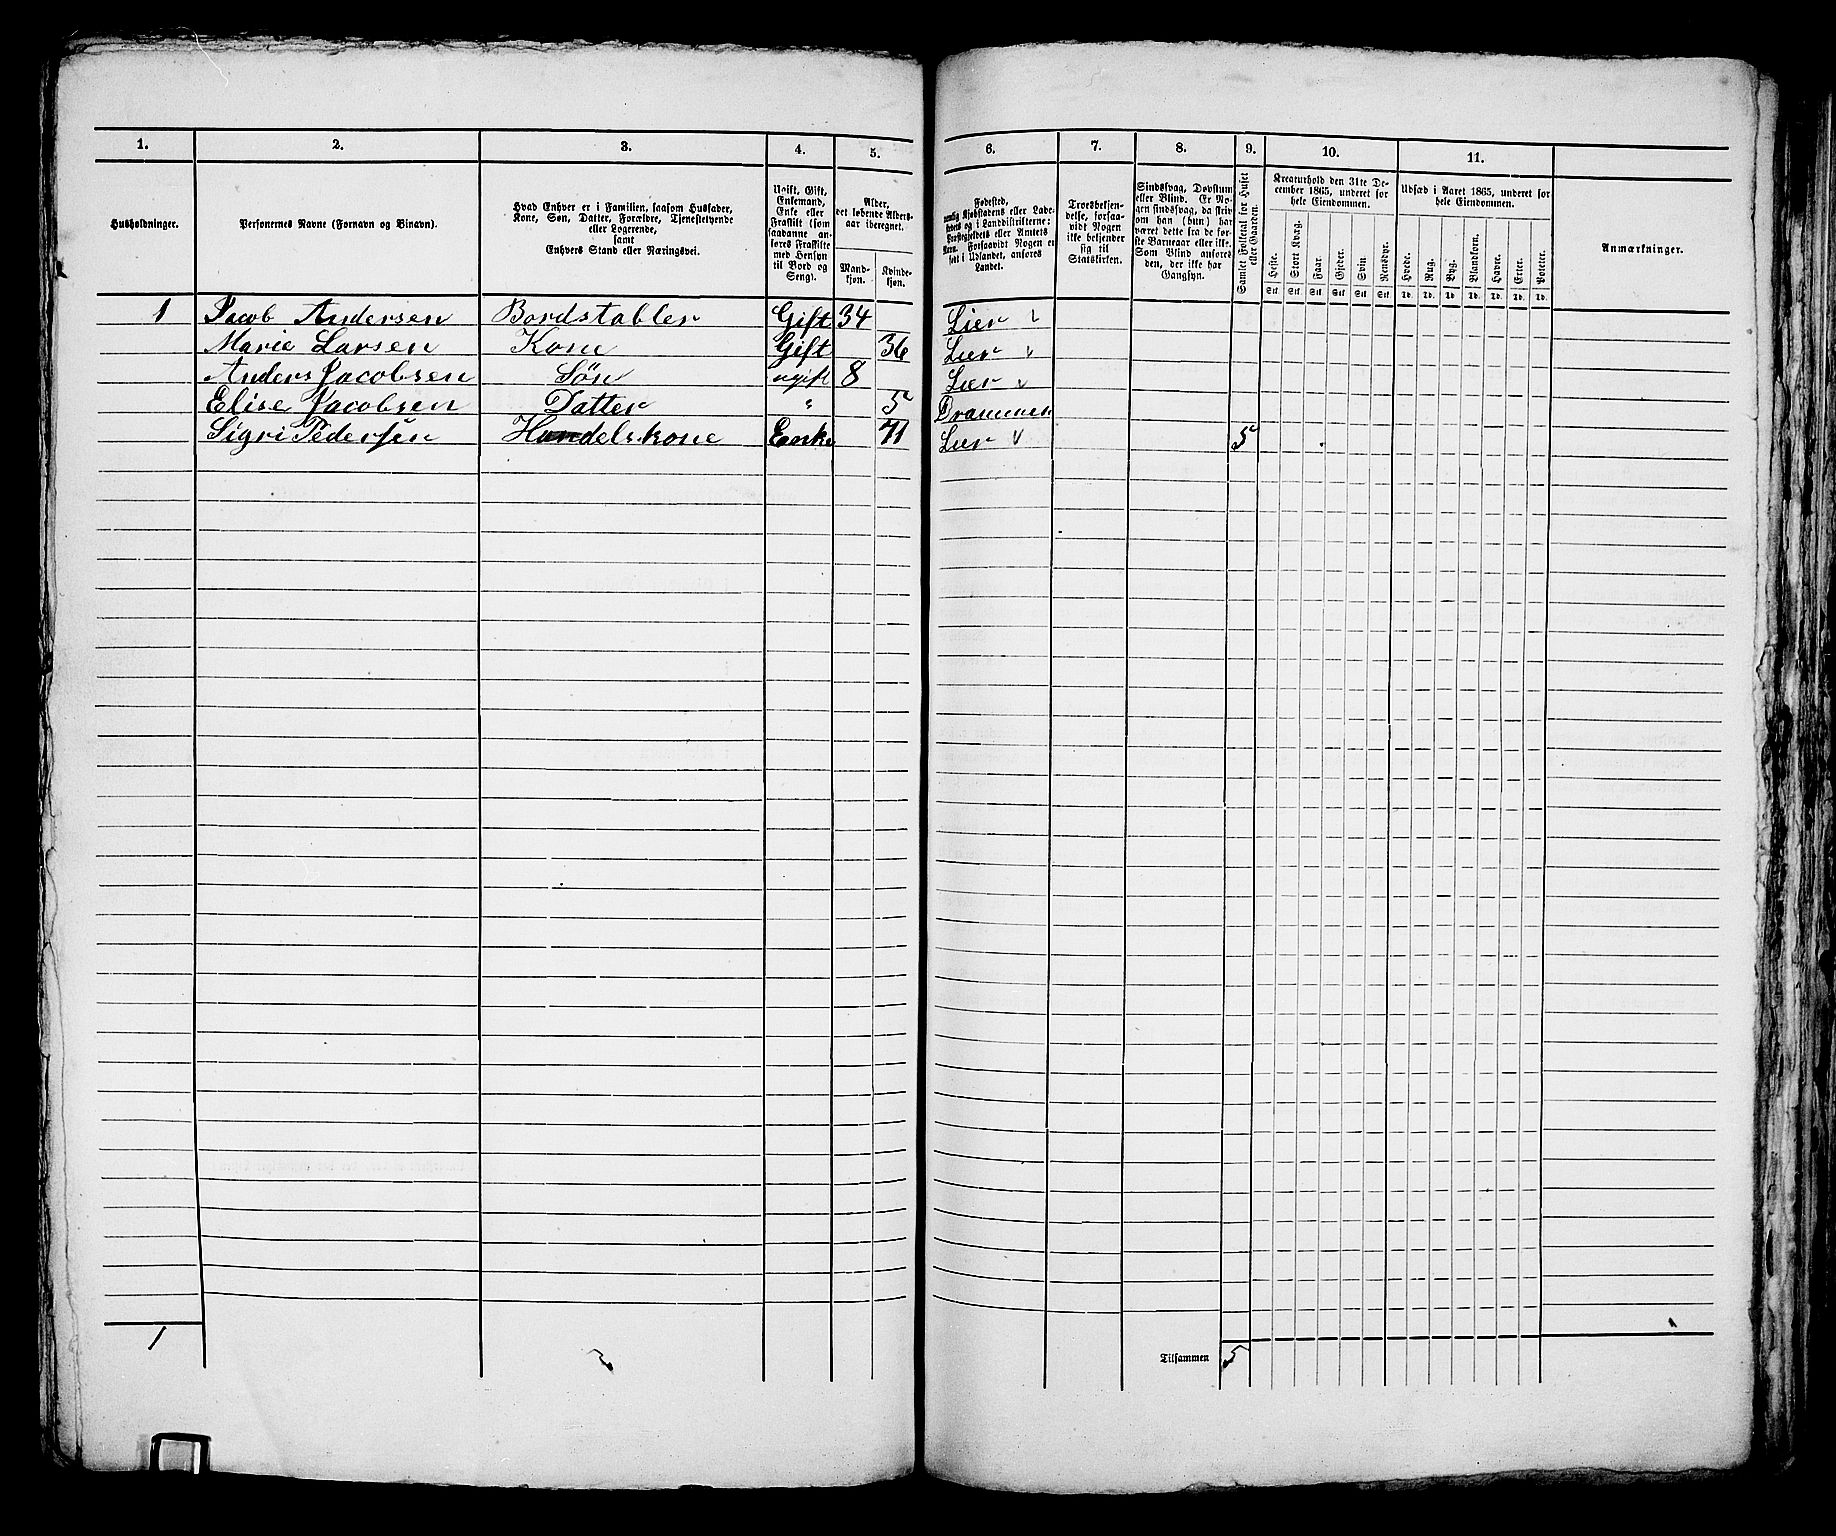 1. 2. 3. 4. 5. 6. 7. 8. 9. 10. 11.
Husholdninger.
Personernes Navne (Fornavn og Binavn).
Hvad Enhver er i Familien, saasom Husfader,
Kone, Søn, Datter, Forældre, Tjenestetyende
eller Logerende,
samt
Enhvers Stand eller Næringsvei.
Ugift, Gift,
Enkemand,
Enke eller
Fraskilt (som
saadanne an-
føres Fraskilte
med Hensyn
til Bord og
Seng).
Alder,
det løbende Alders-
aar iberegnet.
Mand-
kjøn.
Kvinde-
kjøn.
Fødested,
nemlig Kjøbstadens eller Lade-
Præstegjeldets eller Amtets
Navn. Forsaavidt Nogen er
født i Udlandet, anføres
Landet.
Troesbekjen-
delse, forsaa-
vidt Nogen
ikke bekjender
sig til
Statskirken.
Sindssvag, Døvstum
eller Blind. Er No-
gen sindssvag, da skriv
om han (hun) har
været dette fra de før-
ste Barneaar eller ikke.
Som Blind anføres
den, der ikke har
Gangsyn.
Samlet Folketal for Huset
eller Gaarden.
Kreaturhold den 31te De-
cember 1865, underet for
hele Eiendommen.
Heste. Stort Kvæg. Faar. Gjeder. Svin. Rensdyr.
Stk. Stk. Stk. Stk. Stk. Stk.
Udsæd i Aaret 1865, underet for
hele Eiendommen.
Hvede. Rug. Byg. Blandkorn. Havre. Erter. Poteter.
Td. Td. Td. Td. Td. Td. Td.
Anmærkninger.
1 Jacob Andersen Bordstabler Gift 34 Lier
Marie Larsen Kone Gift 36 Lier
Anders Jacobsen Søn ugift 8 Lier
Elise Jacobsen Datter " 5 Drammen
Sigri Pedersen Handelskone Enke 71 Lier 5
1 Tilsammen 5